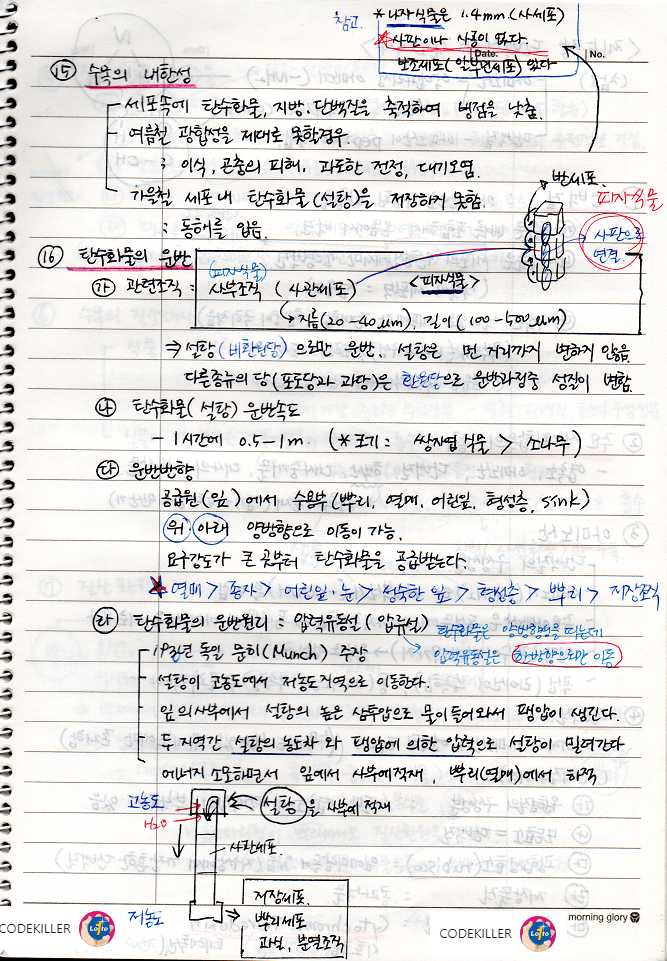 참고. * 나자식물은 1.4mm.(사세포)
* 사판이나 사공이 없다.
Date.
No.
보조세포(알부민세포) 있다
⑮ 수목의 내한성
세포속에 탄수화물, 지방, 단백질을 축적하여 빙점을 낮춤.
여름철 광합성을 제대로 못할경우.
: 이식, 곤충의 피해, 과도한 전정, 대기오염.
가을철 세포내 탄수화물(설탕)을 저장하지 못함.
: 동해를 입음.
반세포.
피자식물
사판으로
연결
⑯ 탄수화물의 운반
(피자식물)
㉮ 관련조직 = 사부조직 (사관세포) <피자식물>
지름(20-40μm), 길이(100-500μm)
⇒ 설탕(비환원당)으로만 운반, 설탕은 먼 거리까지 변하지 않음
다른종류의 당(포도당과 과당)은 환원당으로 운반과정중 성질이 변함.
㉯ 탄수화물(설탕) 운반속도
- 1시간에 0.5-1m. (* 크기 : 쌍자엽 식물 > 소나무)
㉰ 운반방향
공급원(잎)에서 수용부(뿌리, 열매, 어린잎, 형성층, sink)
위·아래 양방향으로 이동이 가능.
요구강도가 큰 곳부터 탄수화물을 공급받는다.
★ 열매 > 종자 > 어린잎·눈 > 성숙한 잎 > 형성층 > 뿌리 > 저장조직
㉱ 탄수화물의 운반원리 : 압력유동설(압류설)
탄수화물은 양방향성을 띠는데
압력유동설은 한방향으로만 이동
독일 뮌히(Munch) 주장
설탕이 고농도에서 저농도 지역으로 이동한다.
잎의 사부에서 설탕의 높은 삼투압으로 물이 들어와서 팽압이 생긴다.
두 지역간 설탕의 농도차와 팽압에 의한 압력으로 설탕이 밀려간다
에너지 소모하면서 잎에서 사부에 적재, 뿌리(열매)에서 하적
고농도
H₂O
설탕을 사부에 적재
사관세포.
저농도
저장세포.
뿌리세포
과실, 분열조직
morning glory
CODEKILLER Lotto
CODEKILLER Lotto